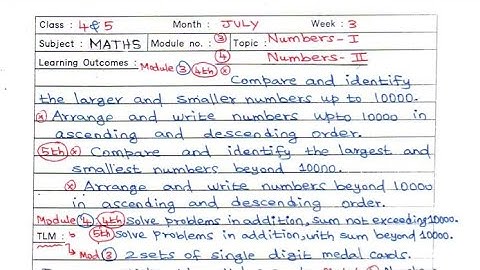 Class : 4&5 Month : JULY Week : 3
Subject : MATHS Module no. : ③ Topic : Numbers-I
④ Numbers-II
Learning Outcomes : Module ③ 4th
Compare and identify
the larger and smaller numbers up to 10000.
Arrange and write numbers upto 10000 in
ascending and descending order.
5th Compare and identify the largest and
smallest numbers beyond 10000.
Arrange and write numbers beyond 10000
in ascending and descending order.
Module ④ 4th Solve problems in addition, sum not exceeding 10000.
TLM : 5th Solve problems in addition, with sum beyond 10000.
Mod ③ 2 sets of single digit medal cards.